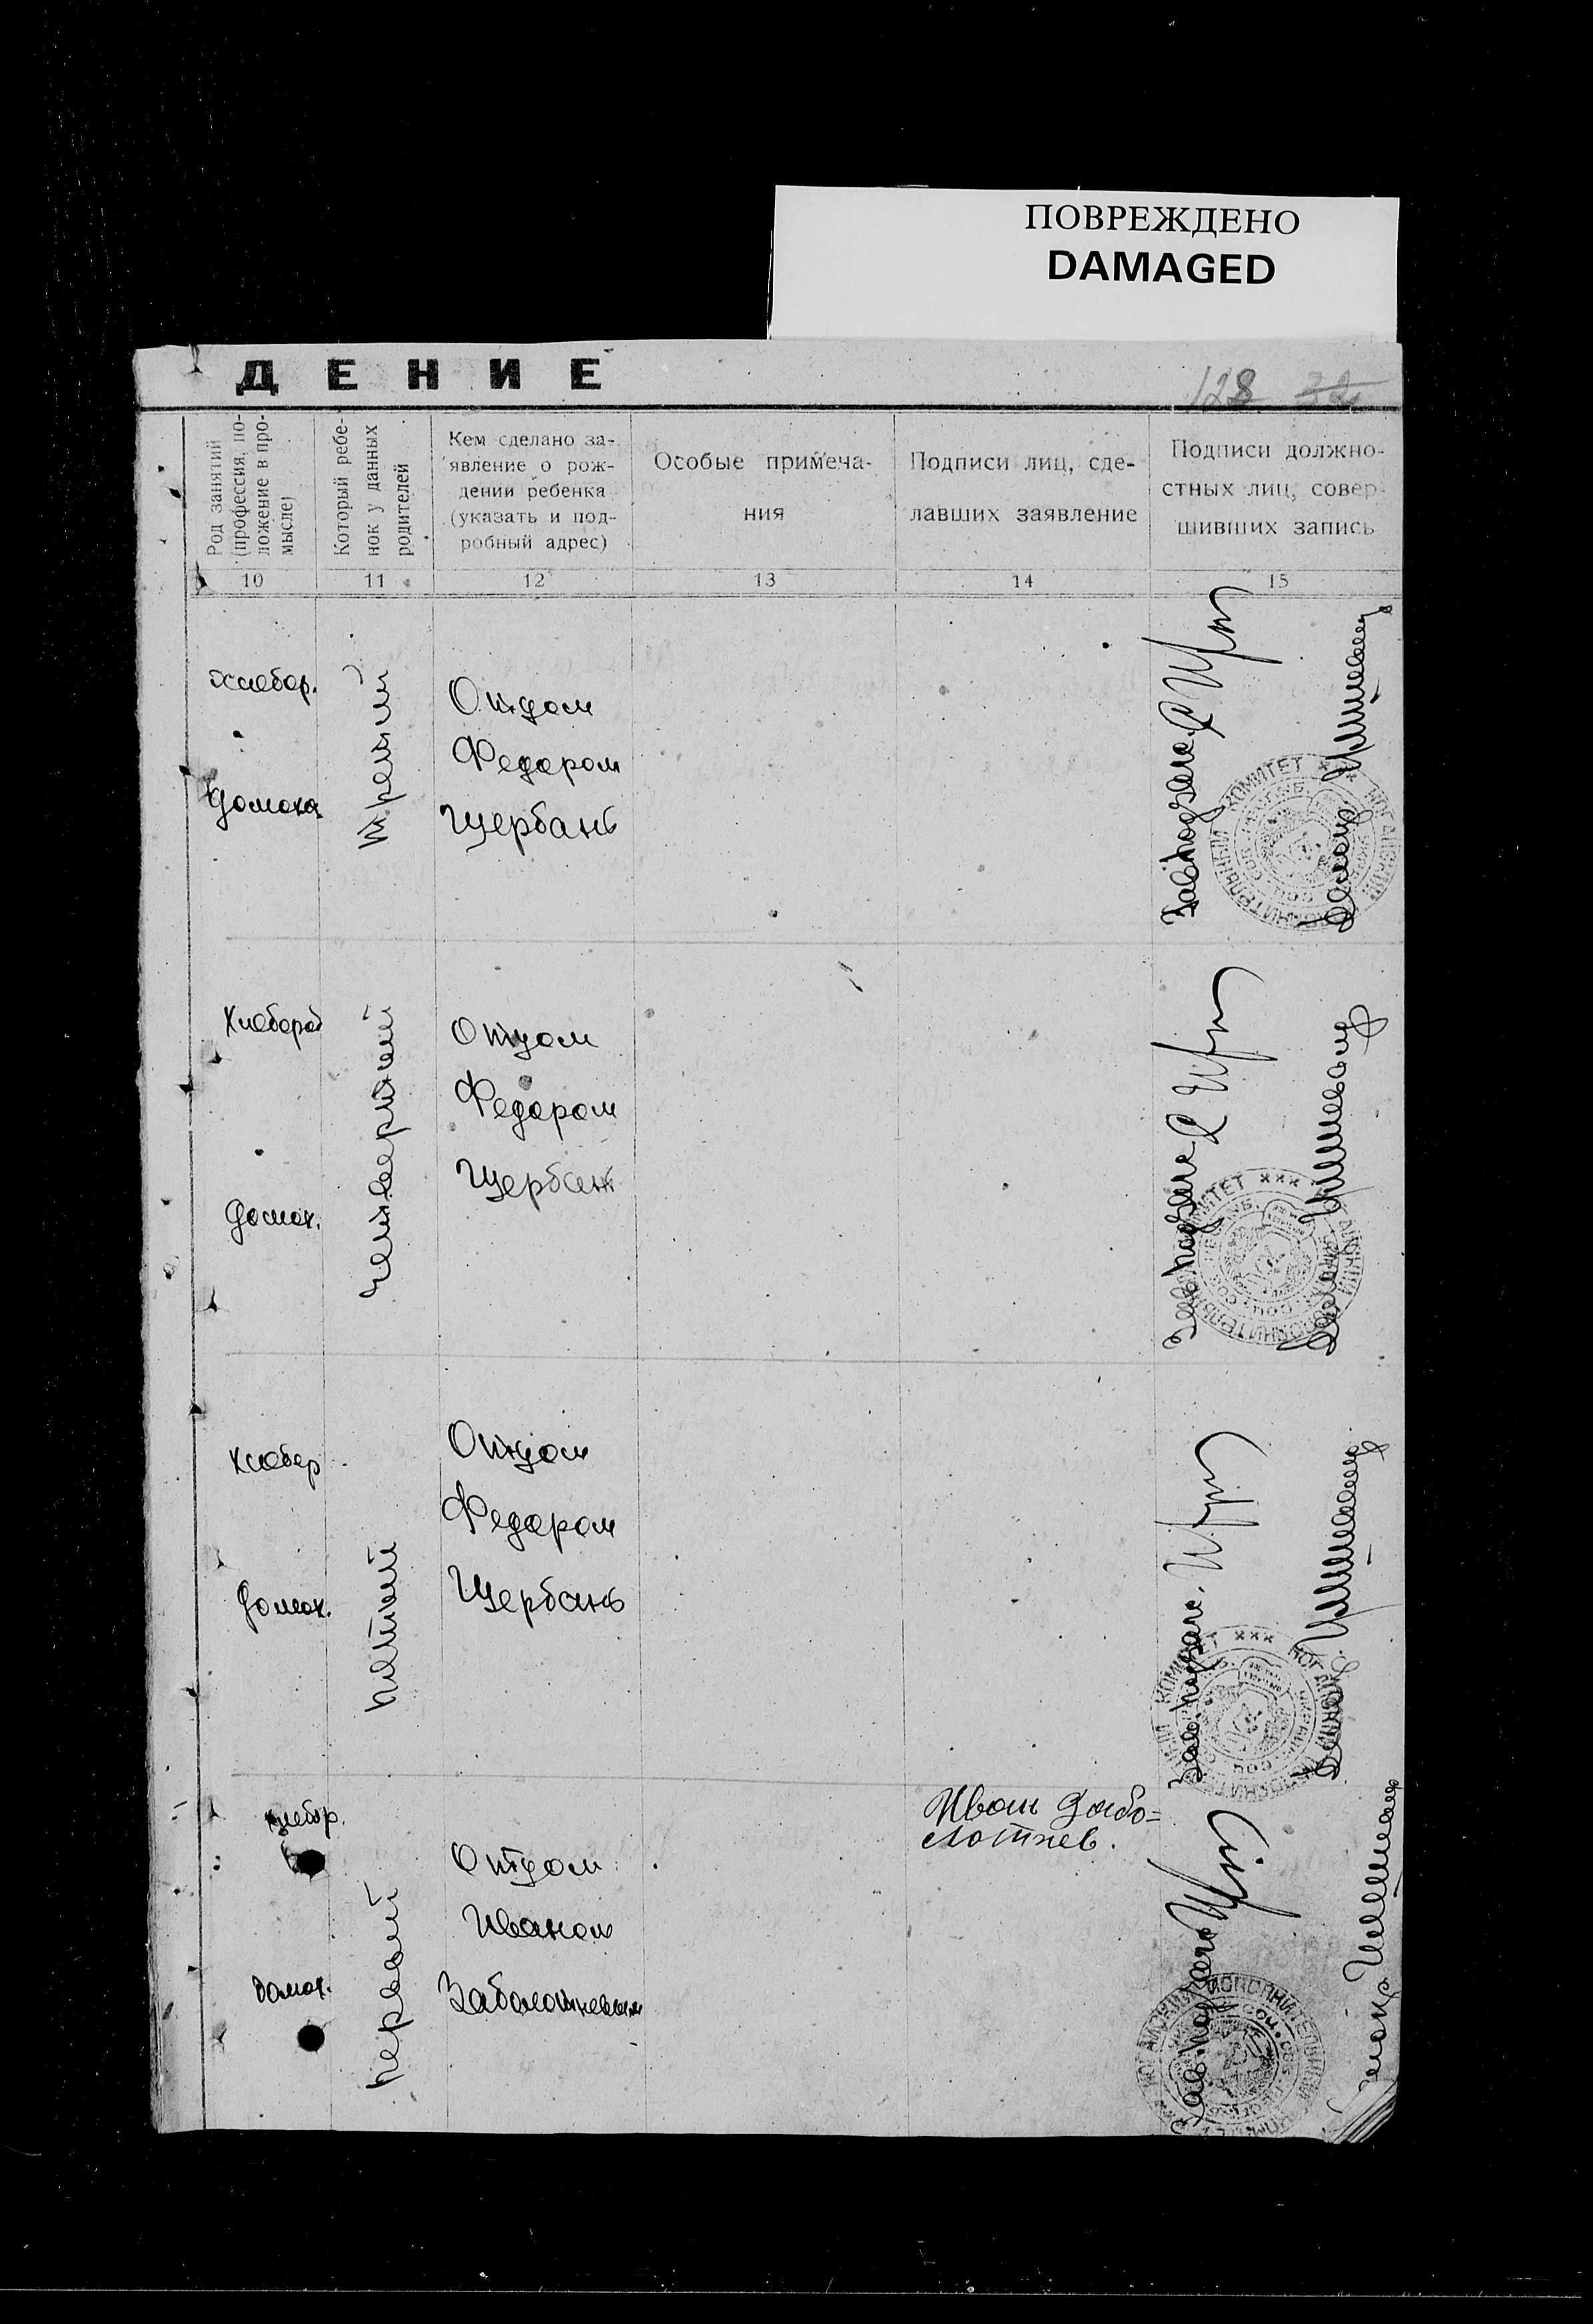 ПОВРЕЖДЕНО
DAMAGED
ДЕНИЕ
128 32
Род занятий
(профессия, по-
ложение в про-
мысле)
Который ребе-
нок у данных
родителей
Кем сделано за-
явление о рож-
дении ребенка
(указать и под-
робный адрес)
Особые примеча-
ния
Подписи лиц, сде-
лавших заявление
Подписи должно-
стных лиц, совер-
шивших запись
10 11 12 13 14 15
хлебор.
домохоз
третий
Отцом
Федором
Щербань
КОМИТЕТ
Хлебороб
домох.
четвертый
Отцом
Федором
Щербань
хлебор
домох.
пятый
Отцом
Федором
Щербань
хлебор.
домох.
первый
Отцом
Иваном
Заболотневым
Иван Забо=
лотнев.